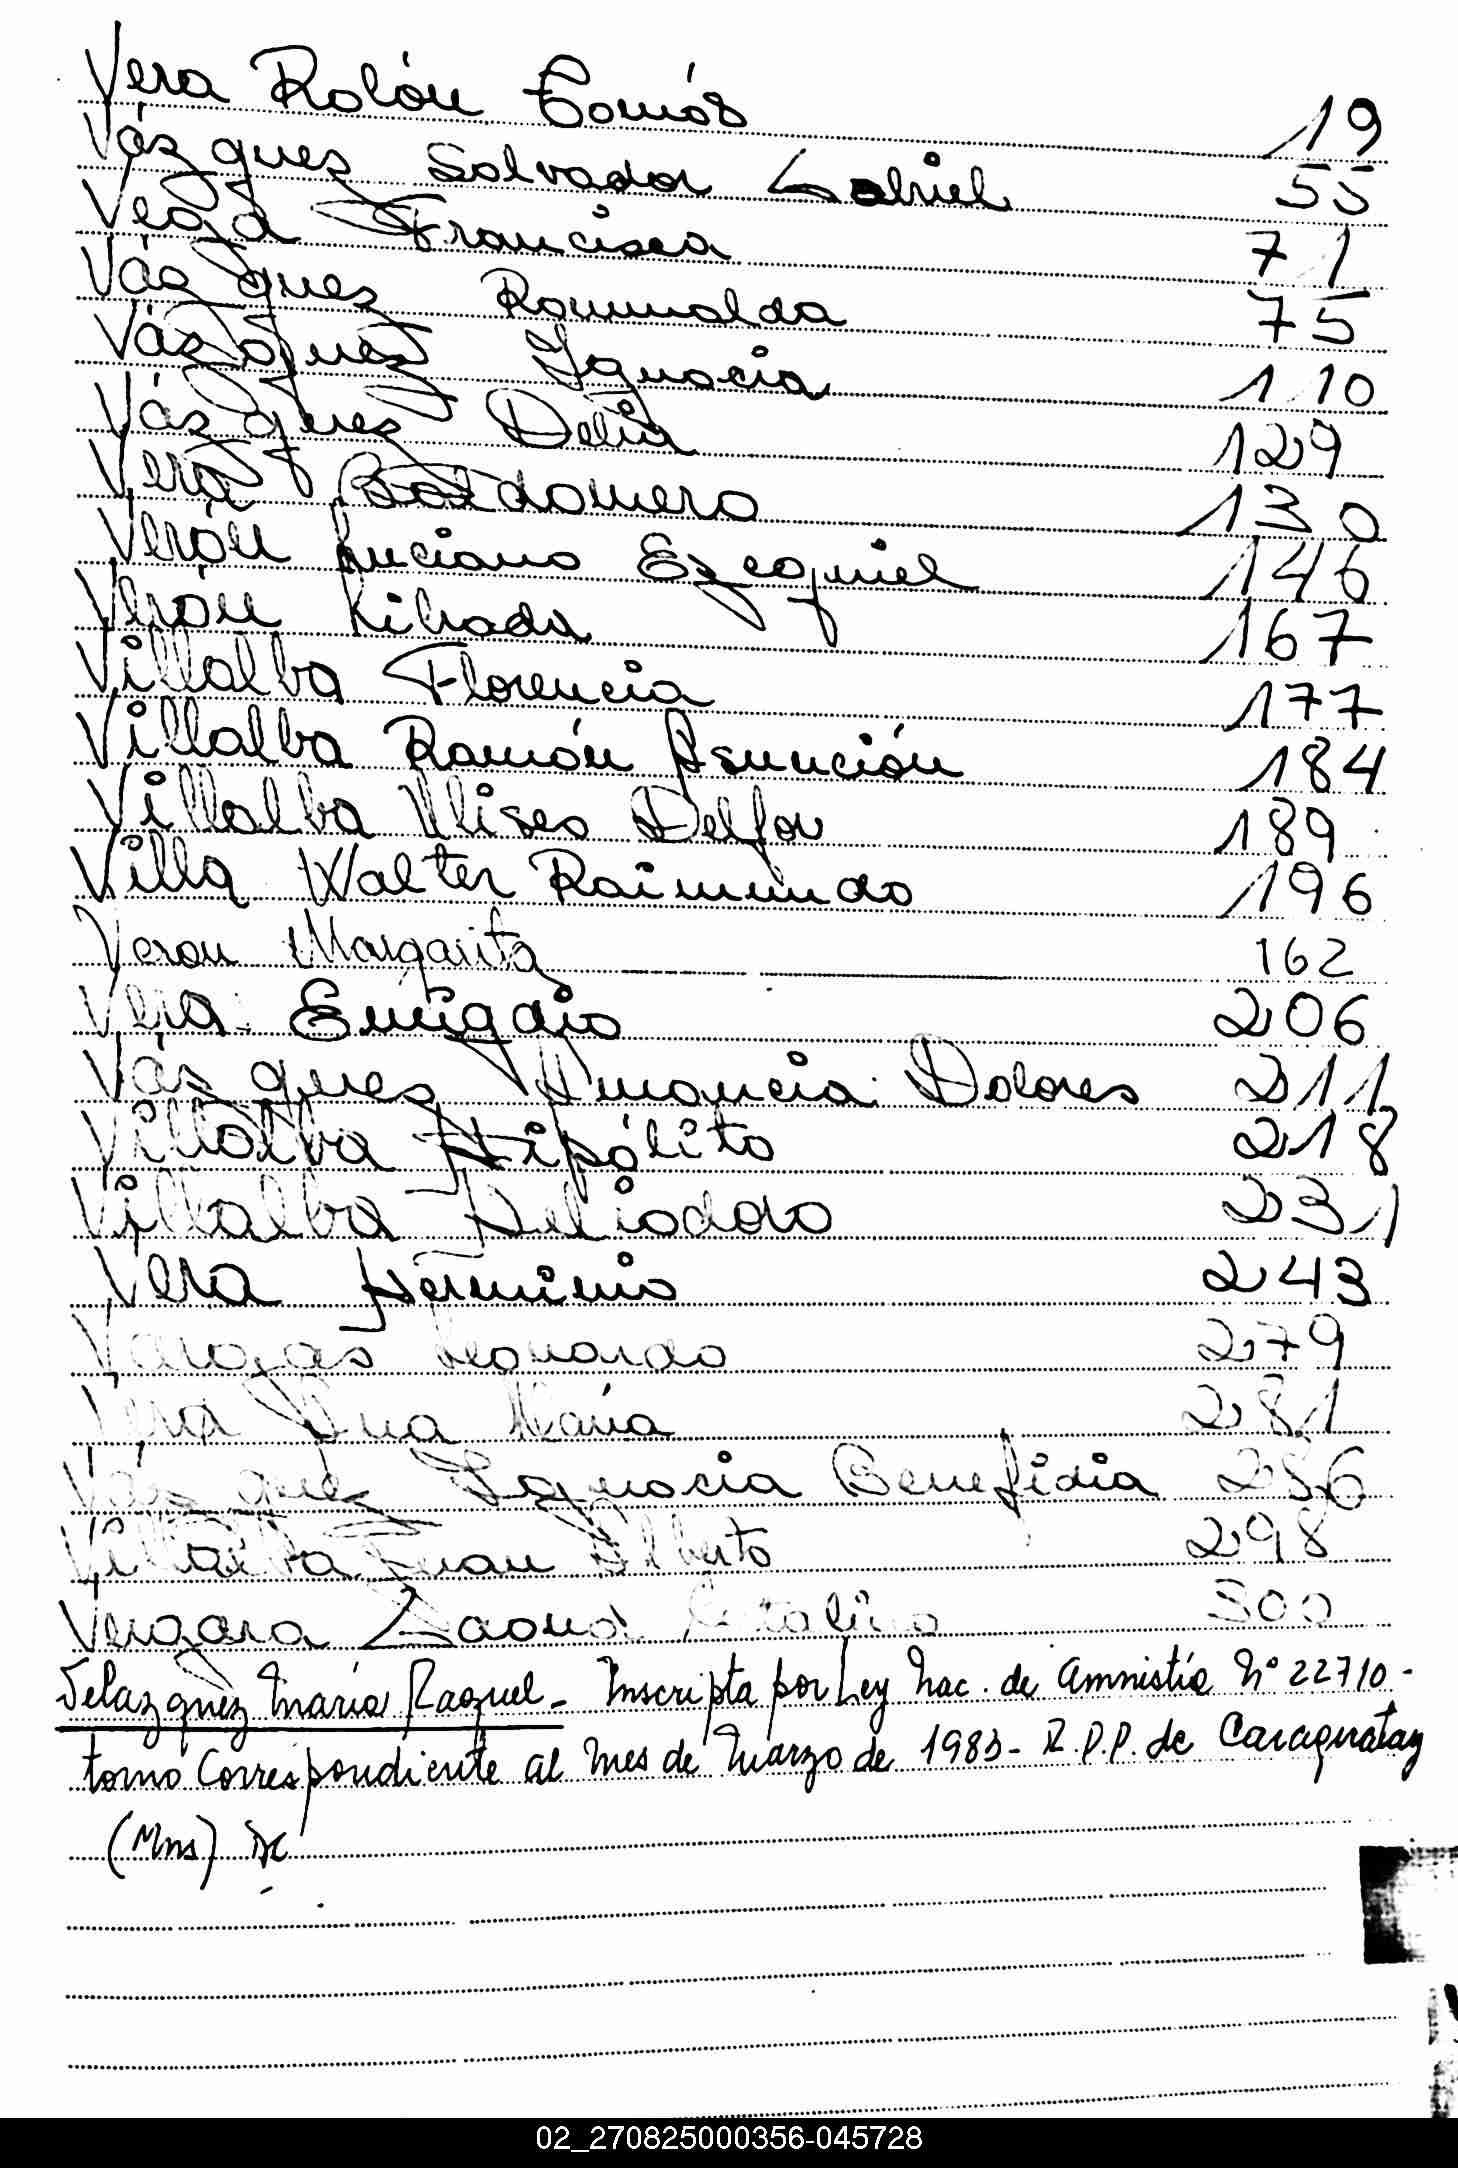 Vera Rolón Tomás 19
Vázquez Salvador Gabriel 55
Vega Francisca 71
Vázquez Romualda 75
Vázquez Ignacia 110
Vázquez Delia 129
Vera Baldomera 130
Verón Luciano Ezequiel 146
Verón Librada 167
Villalba Florencia 177
Villalba Ramón Asunción 184
Villalba Ulises Delfor 189
Villa Walter Raimundo 196
Veron Margarita 162
Vera Emigdio 206
Vázquez Amancia Dolores 211
Villalba Hipólito 218
Villalba Heliodoro 231
Vera Herminio 243
Vargas Leonardo 279
Vera Ana María 281
Vázquez Ignacia Benefidia 286
Villalba Juan Alberto 298
Vergara Catalina 300
Velazquez María Raquel - Inscripta por Ley Nac. de Amnistía N° 22710 -
tomo Correspondiente al mes de Marzo de 1983 - R.P.P. de Caraguatay
(Mns)
02_270825000356-045728